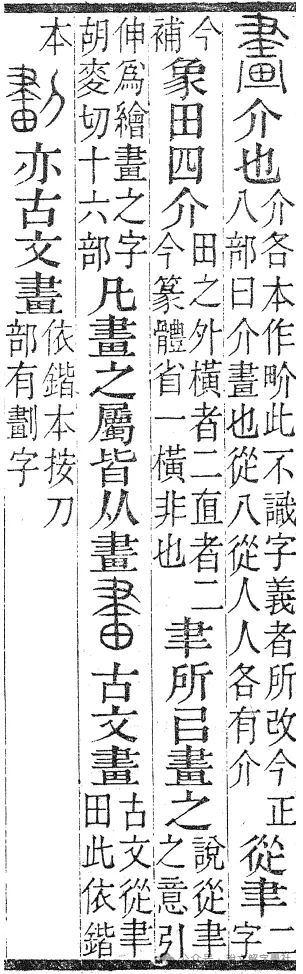 畫介也介各本作畍此不識字義者所改今正八部曰介畫也從八從人人各有介從聿二字
今補象田四介田之外橫者二直者二今篆體省一橫非也聿所㠯畫之說從聿之意引
伸爲繪畫之字胡麥切十六部凡畫之屬皆从畫古文畫古文從聿田此依鍇
本劃亦古文畫依鍇本按刀部有劃字